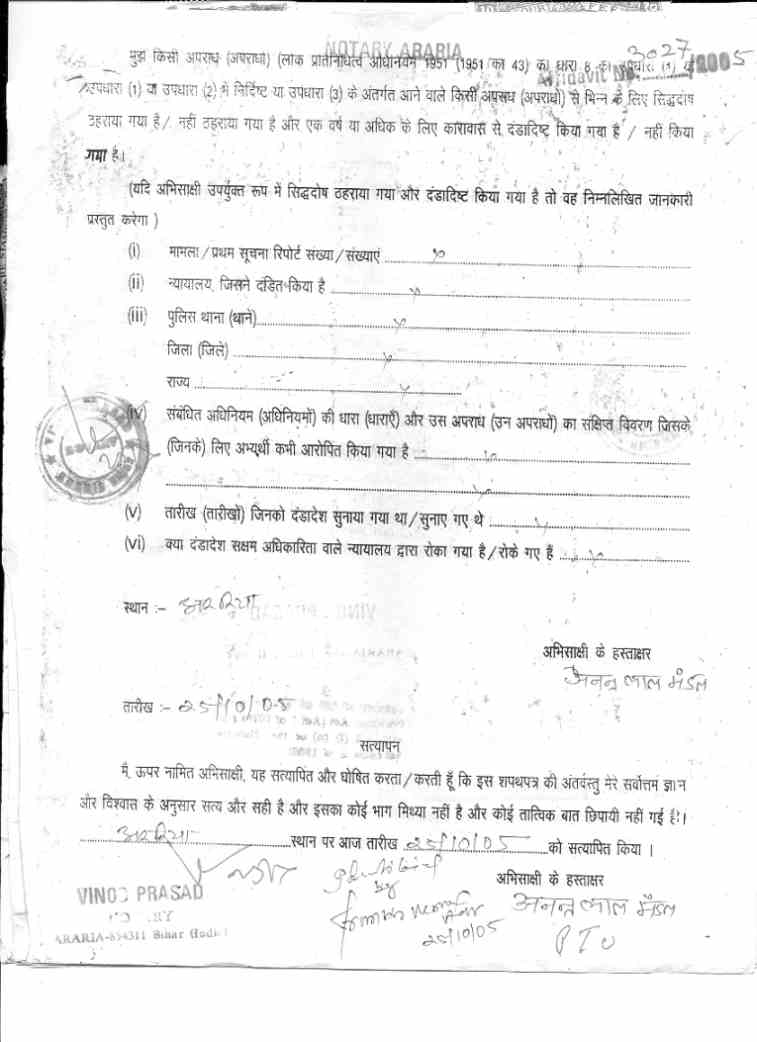 NOTARY ARARIA
मुझे किसी अपराध (अपराधों) (लोक प्रतिनिधित्व अधिनियम 1951 (1951 का 43) की धारा 8 की उपधारा (1) या
Affidavit No. 3027 2005
उपधारा (1) या उपधारा (2) में निर्दिष्ट या उपधारा (3) के अंतर्गत आने वाले किसी अपराध (अपराधों) से भिन्न के लिए सिद्धदोष
ठहराया गया है / नहीं ठहराया गया है और एक वर्ष या अधिक के लिए कारावास से दंडादिष्ट किया गया है / नहीं किया
गया है।
(यदि अभिसाक्षी उपर्युक्त रूप में सिद्धदोष ठहराया गया और दंडादिष्ट किया गया है तो वह निम्नलिखित जानकारी
प्रस्तुत करेगा )
(i) मामला / प्रथम सूचना रिपोर्ट संख्या / संख्याएं
(ii) न्यायालय, जिसने दंडित किया है
(iii) पुलिस थाना (थाने)
जिला (जिले)
राज्य
(iv) संबंधित अधिनियम (अधिनियमों) की धारा (धाराएँ) और उस अपराध (उन अपराधों) का संक्षिप्त विवरण जिसके
(जिनके) लिए अभ्यर्थी कभी आरोपित किया गया है
(v) तारीख (तारीखों) जिनको दंडादेश सुनाया गया था / सुनाए गए थे
(vi) क्या दंडादेश सक्षम अधिकारिता वाले न्यायालय द्वारा रोका गया है / रोके गए हैं
स्थान :- अररिया
अभिसाक्षी के हस्ताक्षर
अनन्त लाल मंडल
तारीख :- 25/10/05
सत्यापन
मैं, ऊपर नामित अभिसाक्षी, यह सत्यापित और घोषित करता / करती हूँ कि इस शपथपत्र की अंतर्वस्तु मेरे सर्वोत्तम ज्ञान
और विश्वास के अनुसार सत्य और सही है और इसका कोई भाग मिथ्या नहीं है और कोई तात्विक बात छिपायी नहीं गई है।
अररिया स्थान पर आज तारीख 25/10/05 को सत्यापित किया ।
अभिसाक्षी के हस्ताक्षर
अनन्त लाल मंडल
PTO
by
25/10/05
VINOD PRASAD
NOTARY
ARARIA-854311 Bihar (India)